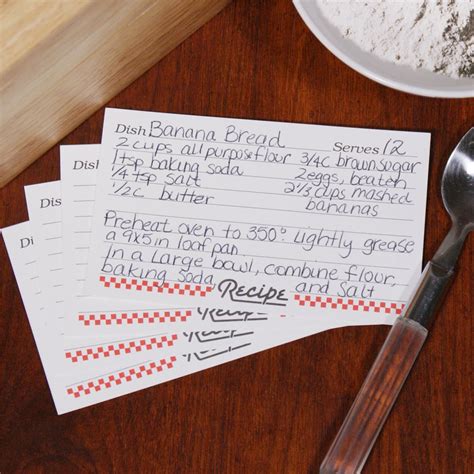 Dish Banana Bread Serves 12
2 cups all purpose flour 3/4 c brown sugar
1 tsp baking soda 2 eggs, beaten
1/4 tsp salt 2 1/3 cups mashed
1/2 c butter bananas
Preheat oven to 350°. Lightly grease
a 9x5 in loaf pan.
In a large bowl, combine flour,
baking soda Recipe and salt
Recipe
Recipe
Recipe